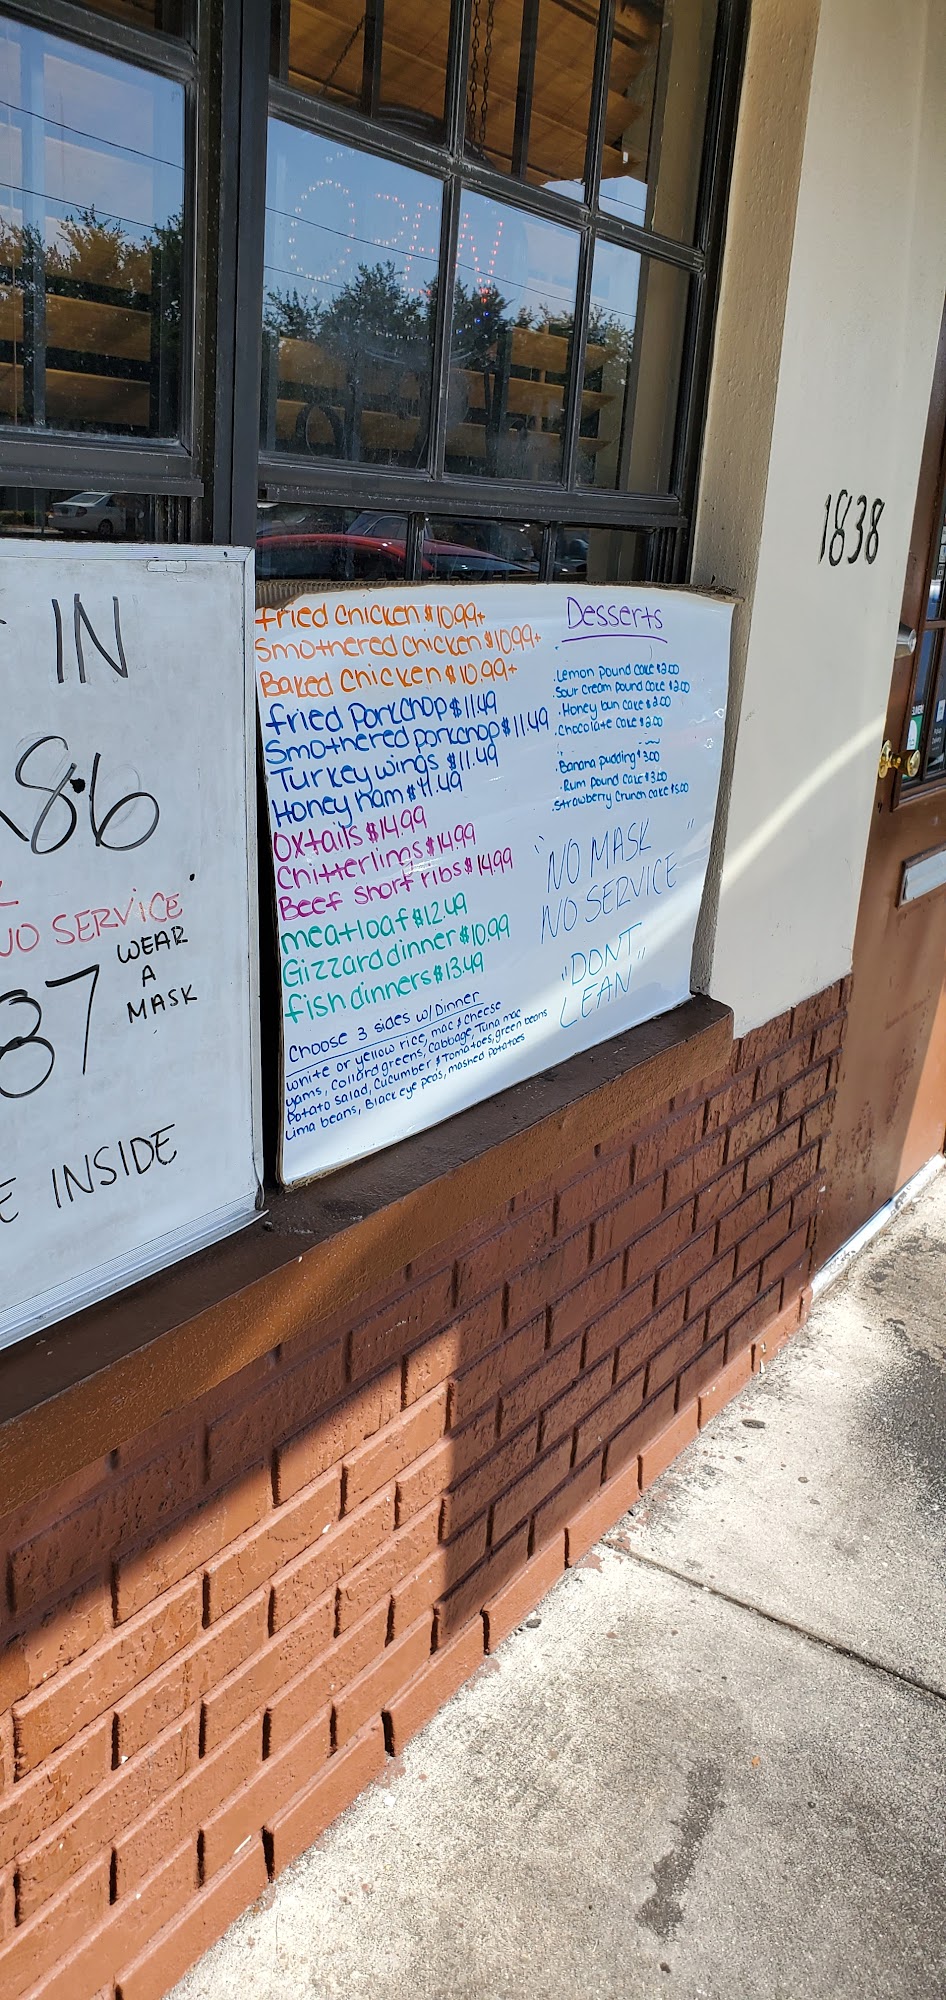 OPEN
1838
IN
86
NO SERVICE
WEAR
A
MASK
37
E INSIDE
Fried Chicken $10.99+
Smothered Chicken $10.99+
Baked Chicken $10.99+
Fried Porkchop $11.49
Smothered porkchop $11.49
Turkey wings $11.49
Honey ham $11.49
Oxtails $14.99
Chitterlings $14.99
Beef Short ribs $14.99
meatloaf $12.49
Gizzard dinner $10.99
fish dinners $13.49
Choose 3 sides w/ Dinner
white or yellow rice, mac & cheese
yams, Collard greens, Cabbage, Tuna mac
Potato salad, Cucumber & Tomatoes, green beans
Lima beans, Black eye peas, mashed potatoes
Desserts
.Lemon pound cake $2.00
.Sour cream pound cake $2.00
.Honey bun cake $2.00
.Chocolate cake $2.00
.Banana pudding $3.00
.Rum pound cake $3.00
.Strawberry Crunch cake $5.00
"NO MASK"
NO SERVICE
"DONT"
LEAN